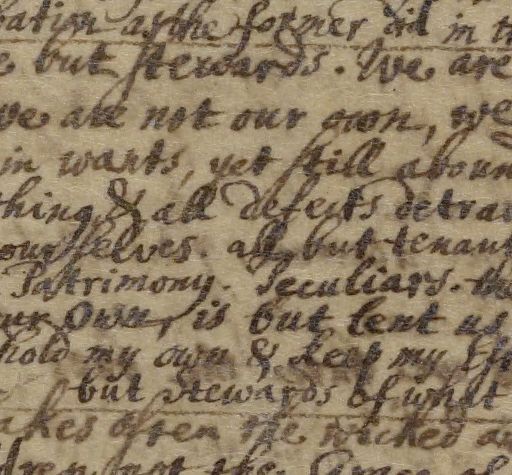 as the former did in
but stewards. We are
we are not our own, we
in wants, yet still aboun
thing & all defects detrac
our selves. all but tenant
Patrimony. Peculiars. the
our Own, is but lent us
hold my own & keep my
but stewards of what
akes often the wicked
not the